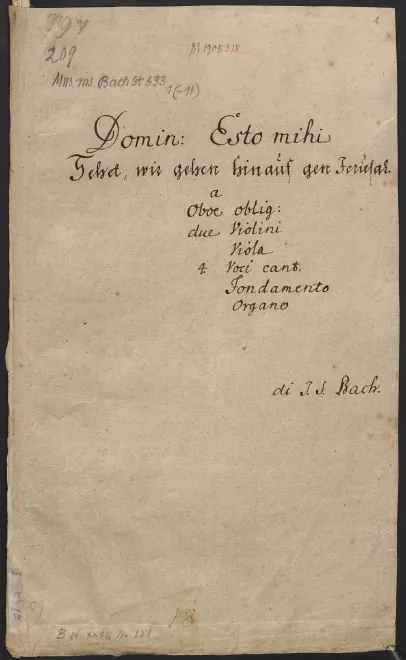 4
209
M 1904.318
Mus. ms. Bach St 533
1(-11)
Domin: Esto mihi
Sehet, wir gehen hinauf gen Jerusal.
a
Oboe oblig:
due Violini
Viola
4 Voci cant.
Fondamento
Organo
di J. S. Bach.